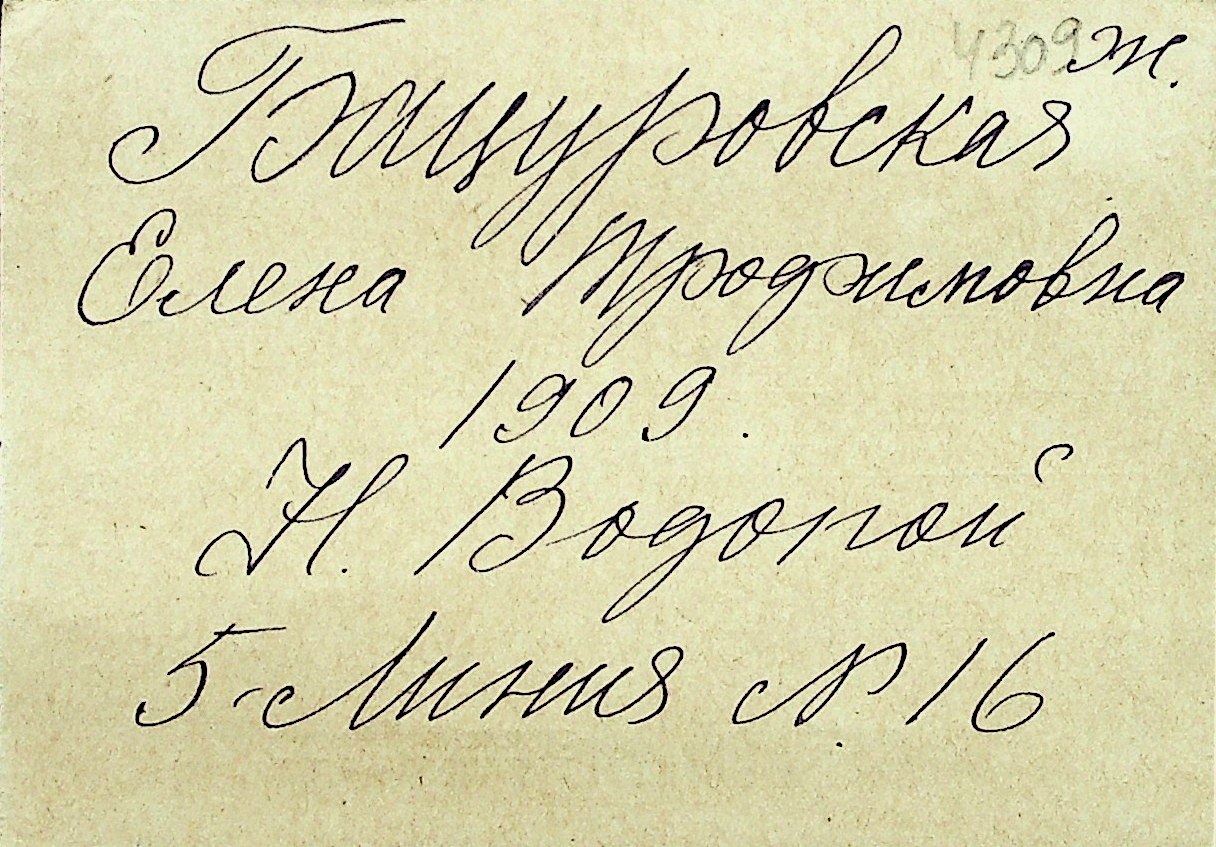 4309 ж.
Бацуровская
Елена Трофимовна
1909.
Н. Водопой
5-Линия № 16